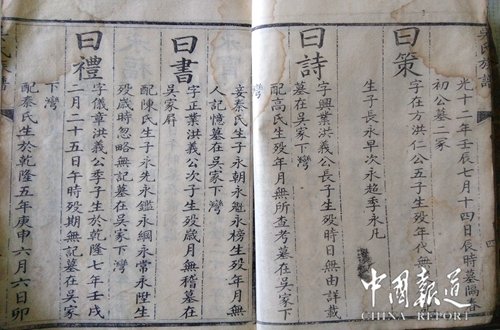 氏族譜
光十二年壬辰七月十四日辰時墓隔春
初公墓二冢
曰策
字在方洪仁公五子生殁年代無
生子長永早次永超季永凡
曰詩
字興業洪義公長子生殁時日無由詳載
墓在吳家下灣
配高氏生殁年月無所查考墓在吳家下
灣
妾秦氏生子永朝永魁永榜生殁年月無
人記憶墓在吳家下灣
曰書
字正業洪義公次子生殁歲月無稽墓在
吳家屏
配陳氏生子永先永鑑永綱永常永陞生
殁歲時忽略無記墓在吳家下灣
曰禮
字儀章洪義公季子生於乾隆七年壬戌
二月二十五日午時殁期無記墓在吳家
下灣
配秦氏生於乾隆五年庚申六月六日卯
中國報道
CHINA REPORT